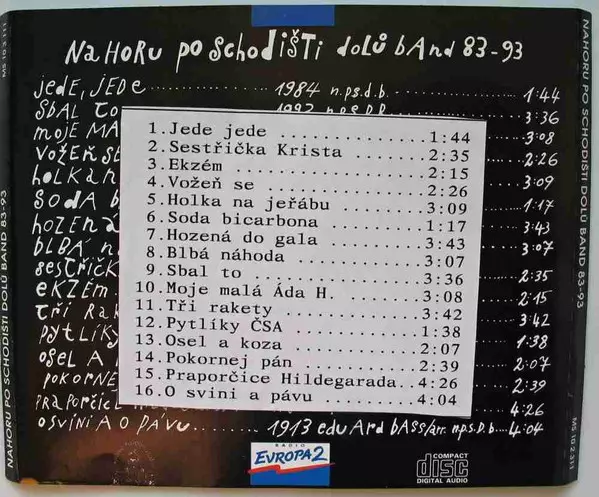 Nahoru po schodišti dolů band 83-93
jede, jede 1984 n.p.s.d.b. 1:44
Sbal to 1992 n.p.s.D.B. 3:36
moje MA 3:08
Vožeň se 2:26
holka n 3:09
SODA b 1:17
hozená 3:43
blbá n 3:07
sestřičk 2:35
ekzém 2:15
tři rak 3:42
pytlíky 1:38
osel A 2:07
pokorne 2:39
praporčic 4:26
o svini A o pávu 1913 eduArd bASS/arr. n.p.s.D.b. 4:04
1. Jede jede .......... 1:44
2. Sestřička Krista ..... 2:35
3. Ekzém ............. 2:15
4. Vožeň se ........... 2:26
5. Holka na jeřábu ...... 3:09
6. Soda bicarbona ....... 1:17
7. Hozená do gala ....... 3:43
8. Blbá náhoda ......... 3:07
9. Sbal to ............ 3:36
10. Moje malá Áda H. ..... 3:08
11. Tři rakety ......... 3:42
12. Pytlíky ČSA ........ 1:38
13. Osel a koza ........ 2:07
14. Pokornej pán ....... 2:39
15. Praporčice Hildegarada.. 4:26
16. O svini a pávu ...... 4:04
RADIO
EVROPA 2
COMPACT
disc
DIGITAL AUDIO
NAHORU PO SCHODIŠTI DOLŮ BAND 83-93
MS 10 2 311
NAHORU PO SCHODIŠTI DOLŮ BAND 83-93
MS 10 2 311